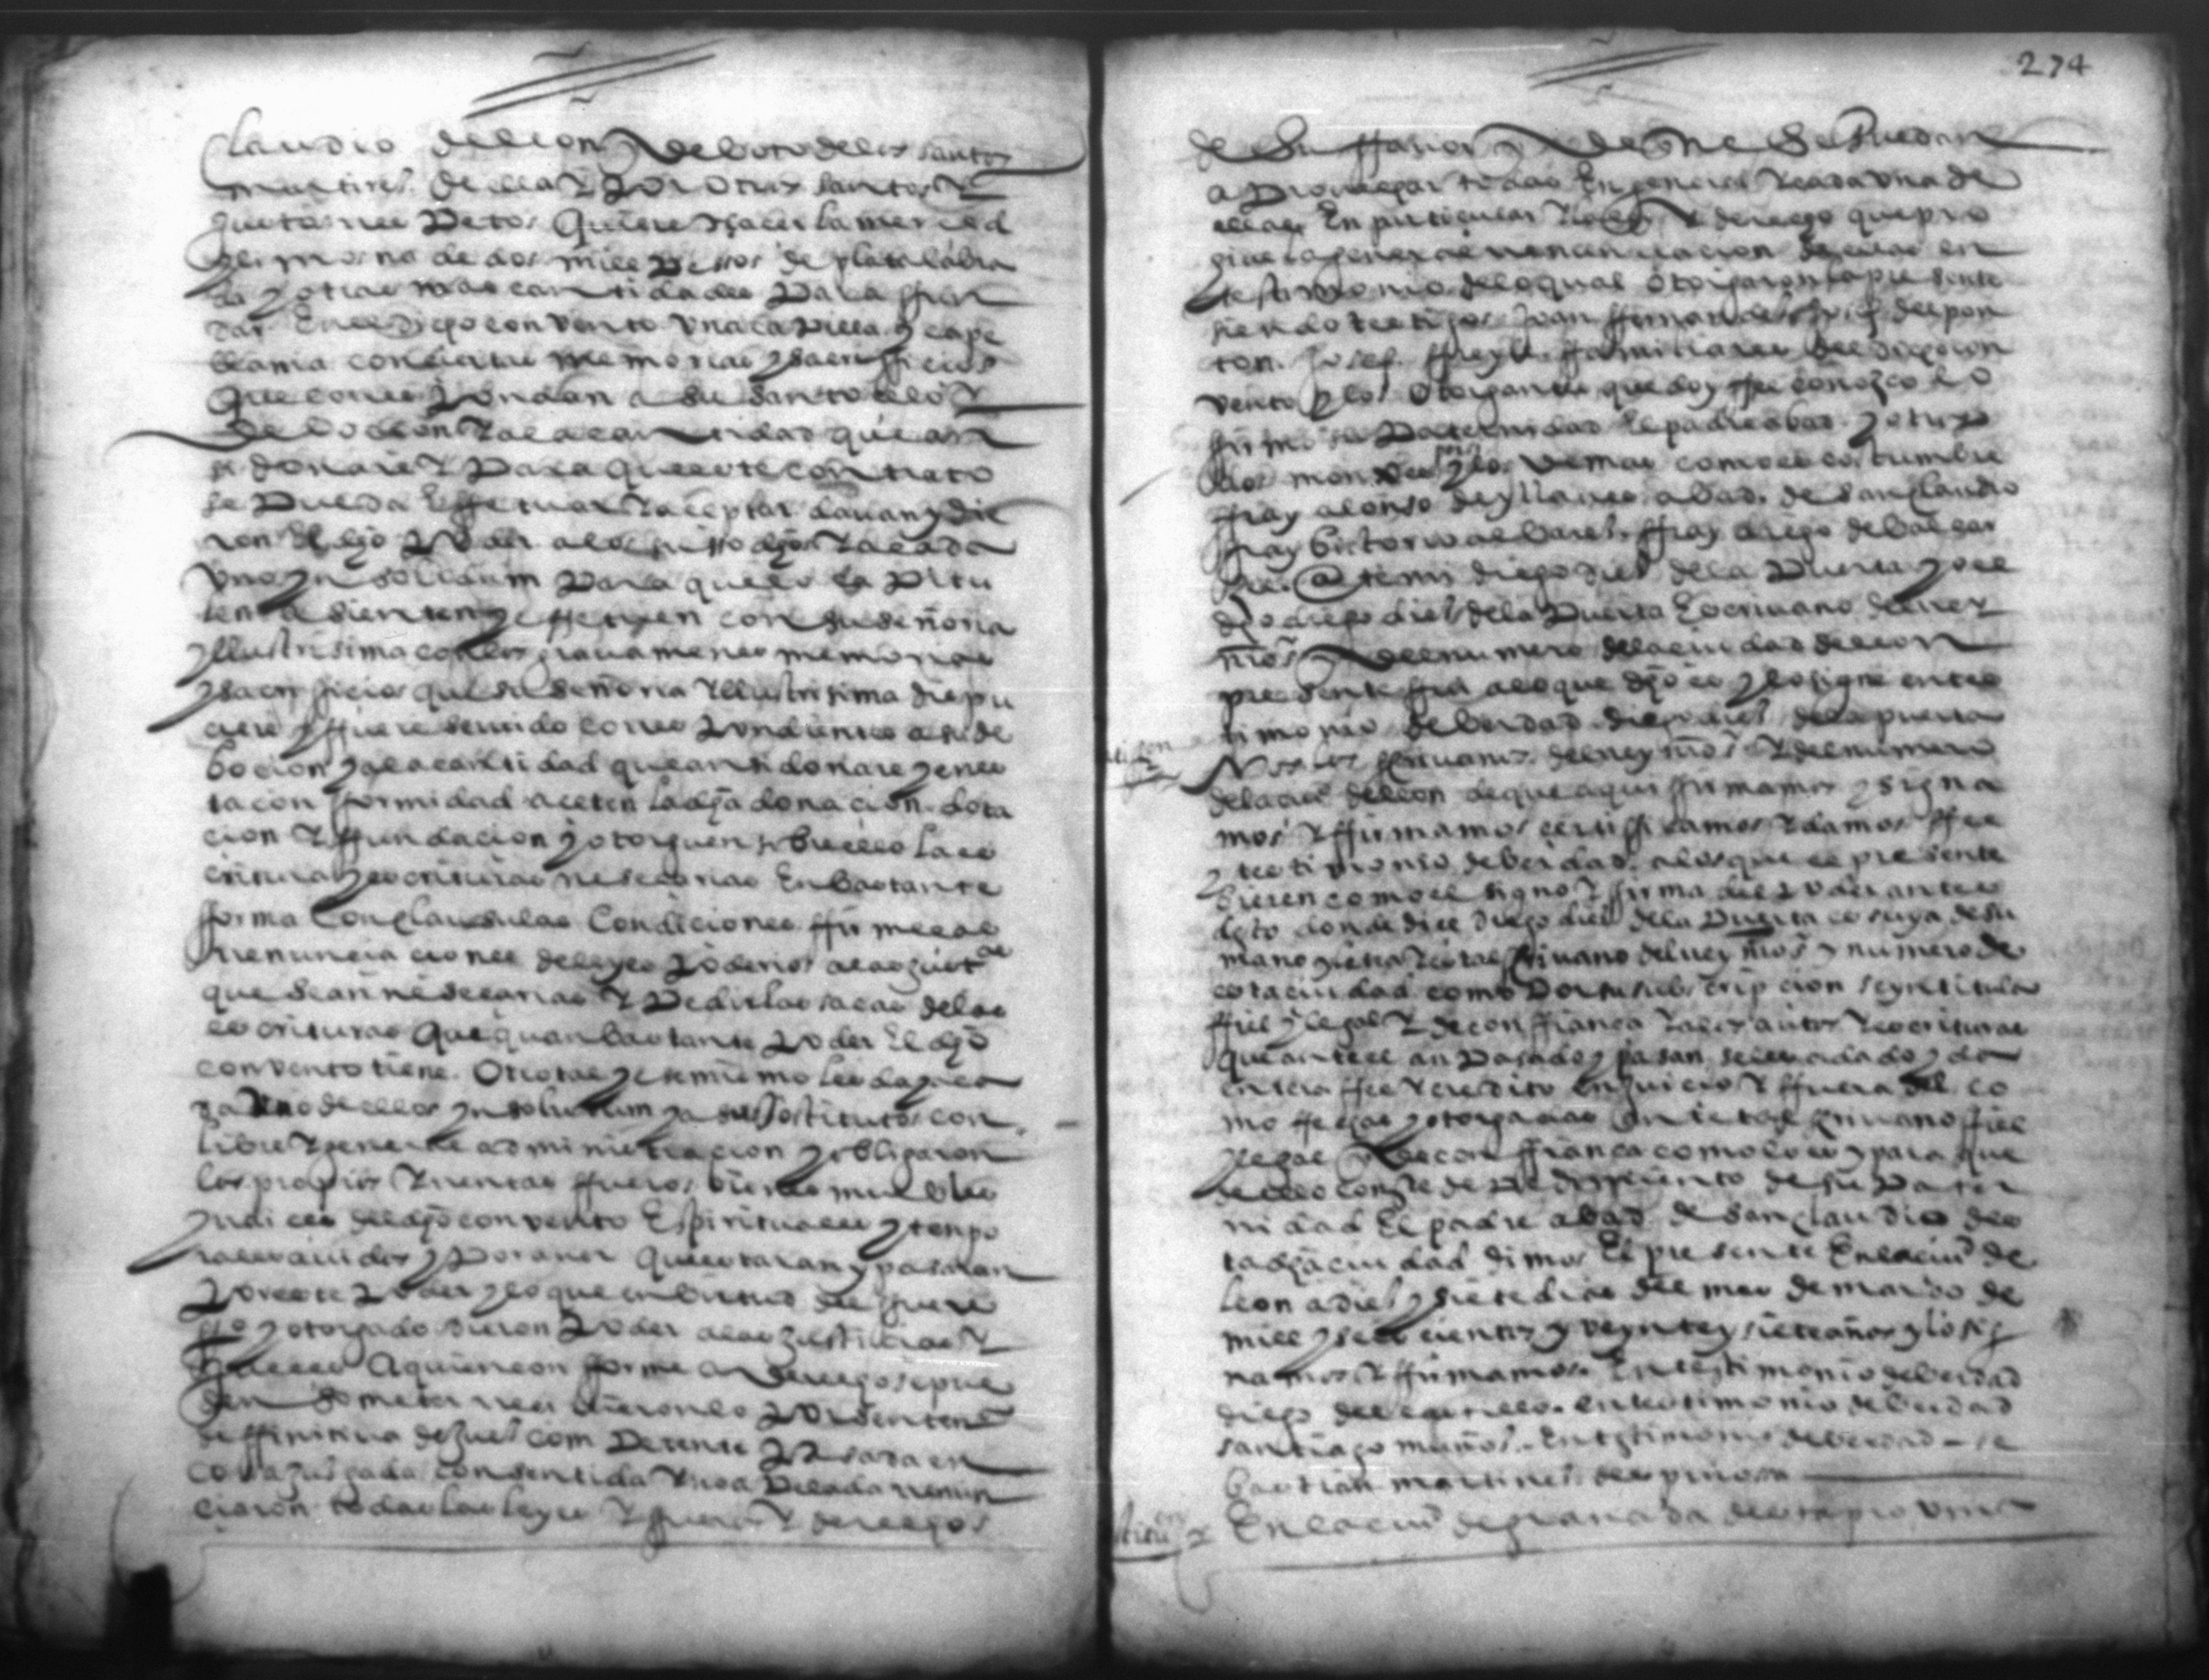 Claudio de leon y deboto de los santos
martires de ella y por otros santos
quiere hacer la merced
y limosna de dos mill pessos de plata labra
da y otras mas cantidades para fun
dar en el dicho convento una capilla y cape
llania con ciertas memorias y sacrificios
que corres pondan a su santo celo y
debocion y a la cantidad que ansi
donare y para que este contrato
se pueda effetuar y aceptar davan y die
ron el dho poder a los suso dhos y a cada
uno yn solidum para que lo capitu
len asienten y effetuen con su señoria
yllustrisima con los gravamenes memorias
y sacrificios que su señoria yllustrisima dispu
siere y fuere servido corres pondientes a su de
bocion y a la cantidad que ansi donare y en es
ta con formidad aceten la dha donacion dota
cion y ffundacion y otorguen sobre ello la es
critura y escrituras nesecarias en bastante
forma con clausulas condiciones ffirmezas
rrenuncia ciones de leyes poderios a las just as
que sean nesecarias y pedir las sacas de las
escrituras que quan bastante poder el dho
convento tiene otro tal y ese mismo les da y a ca
da uno de ellos yn solidum y a sus sostitutos con
libre y general administracion y obligaron
los propios y rentas ffueros bienes muebles
y raices del dho convento espirituales y tenpo
rales avidos y por aver que estaran y pasaran
por este poder y lo que en birtud del fuere
fho y otorgado dieron poder a las justicias y
jueces a quien con forme a derecho se pue
den someter rrecivieronlo por senten
diffinitiva de juez conpetente pasada en
cosa juzgada consentida y no apelada renun
ciaron todas las leyes y fueros y derechos
274
de su ffavor y de que se puedan
a provechar todas en general y cada una de
ellas en particular y la ley y derecho que pro
hive la general renunciacion de ellas en
testimonio de lo qual otorgaron la presente
siendo testigos Juan ffernandes
ton Josef ffreyle ffamiliares del dicho con
vento y los otorgantes que doy ffee conozco lo
firmo su paternidad el padre abad y otros
dos monxes por los demas como es costumbre
ffray alonso de yllanes abad de san claudio
ffray bitorio albares ffray diego de balcar
ce ante mi diego diez de la Puerta y yo el
dho diego diez de la Puerta Escrivano del rey
nro sr y del numero de la ciudad de leon
presente fui a lo que dho es y lo signe en tes
timonio de berdad diego diez de la puerta
Nos los escrivanos del rey nro sr y del numero
de la ciud de leon que aqui ffirmamos y signa
mos y ffirmamos certifficamos y damos ffee
y testimonio de berdad a los que el presente
bieren como el signo y firma del poder antes
desto donde dice diego diez de la Puerta es suya de su
mano y letra y es tal escrivano del rey nro sr y numero de
esta ciudad como por su subscripcion se yntitula
ffiel y legal y de con ffianca y a los autos y escrituras
que ante el an pasado y pasan se les a dado y da
entera ffee y credito en juicio y ffuera del co
mo ffechas y otorgadas ante tal escrivano ffiel
y legal y de con ffianca como lo es y para que
de ello conste de pedimiento de su pater
nidad el padre abad de san claudio des
ta dha ciudad dimos el presente en la ciud de
leon a diez y siete dias del mes de marzo de
mill y seis cientos y veynte y siete años y lo sig
namos y ffirmamos en testimonio de berdad
diego del castillo en testimonio de berdad
santiago muñoz en testimonio de berdad se
bastian martinez
En la ciud de granada desta pro vin